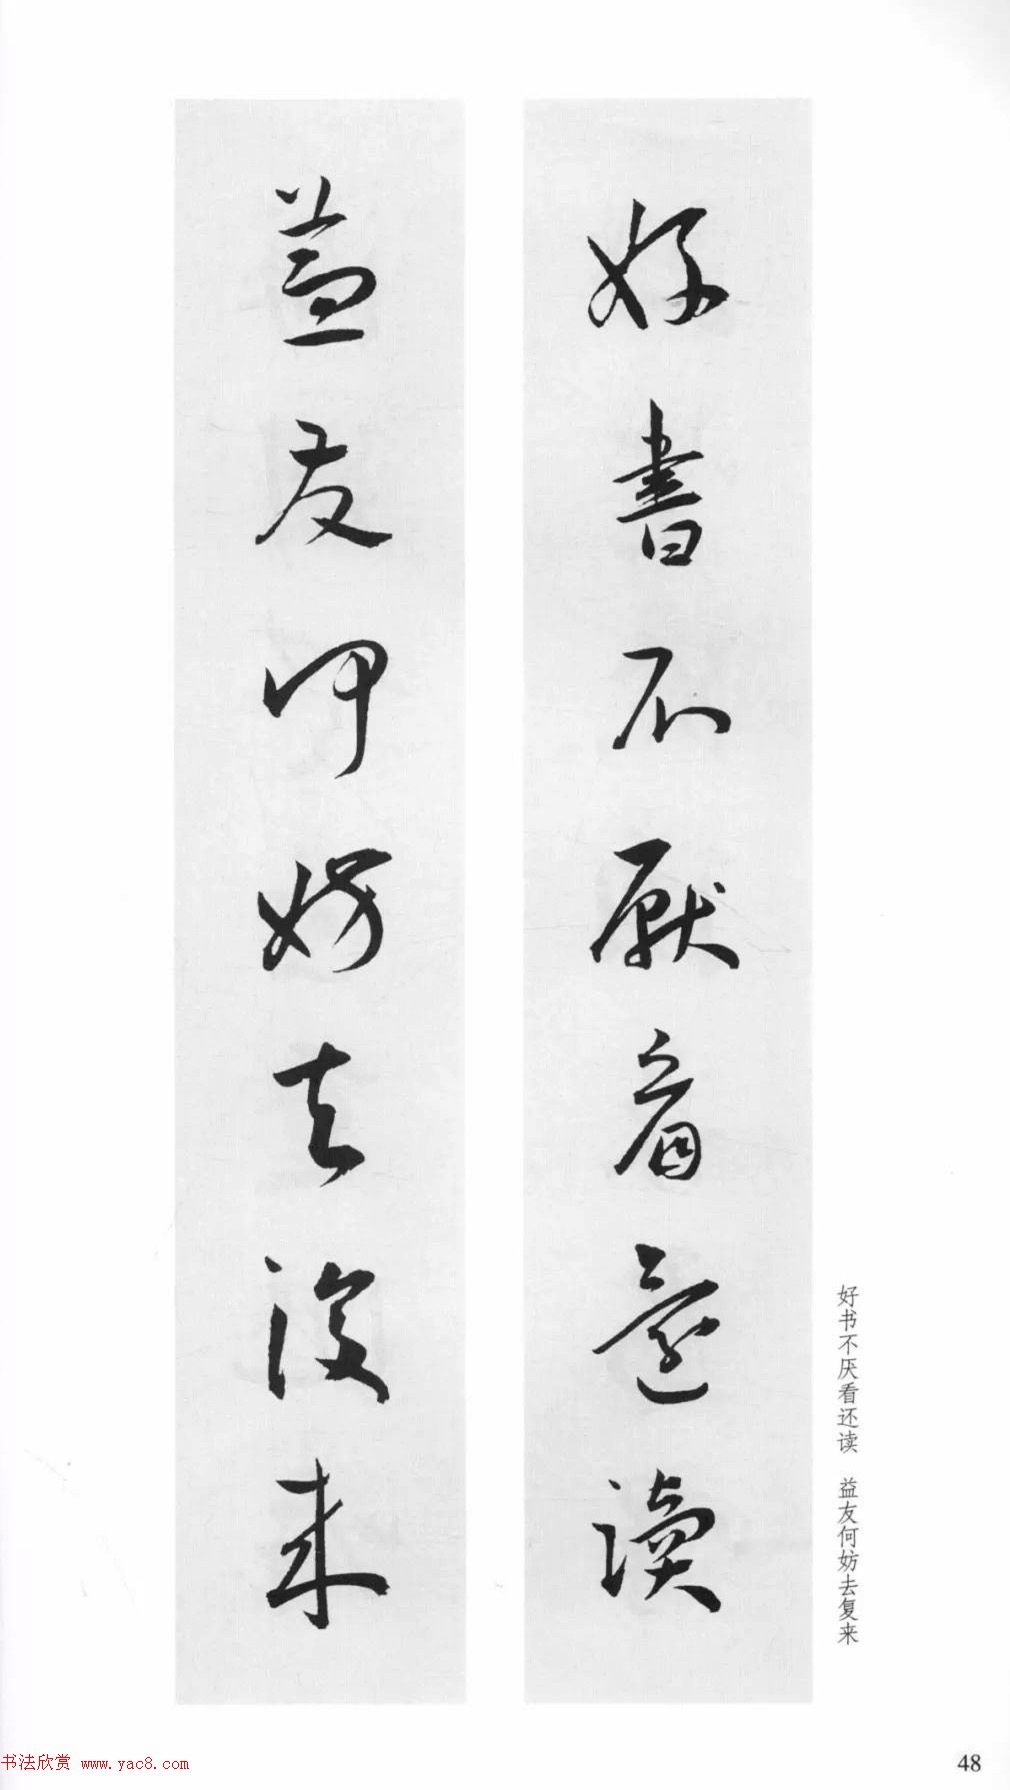 好書不厭看還讀
益友何妨去復来
好书不厌看还读　益友何妨去复来
书法欣赏 www.yac8.com
48